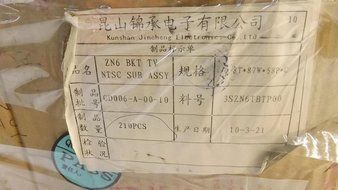 昆山锦承电子有限公司
Kunshan Jincheng Electronics Co.,Ltd
10
制品标示单
品名 ZN6 BKT TV NTSC SUB ASSY 规格
制品批号 CD006-A-00-10 料号 3SZN61BTP00
制品数量 210PCS 生产日期 10-3-21
检验状况